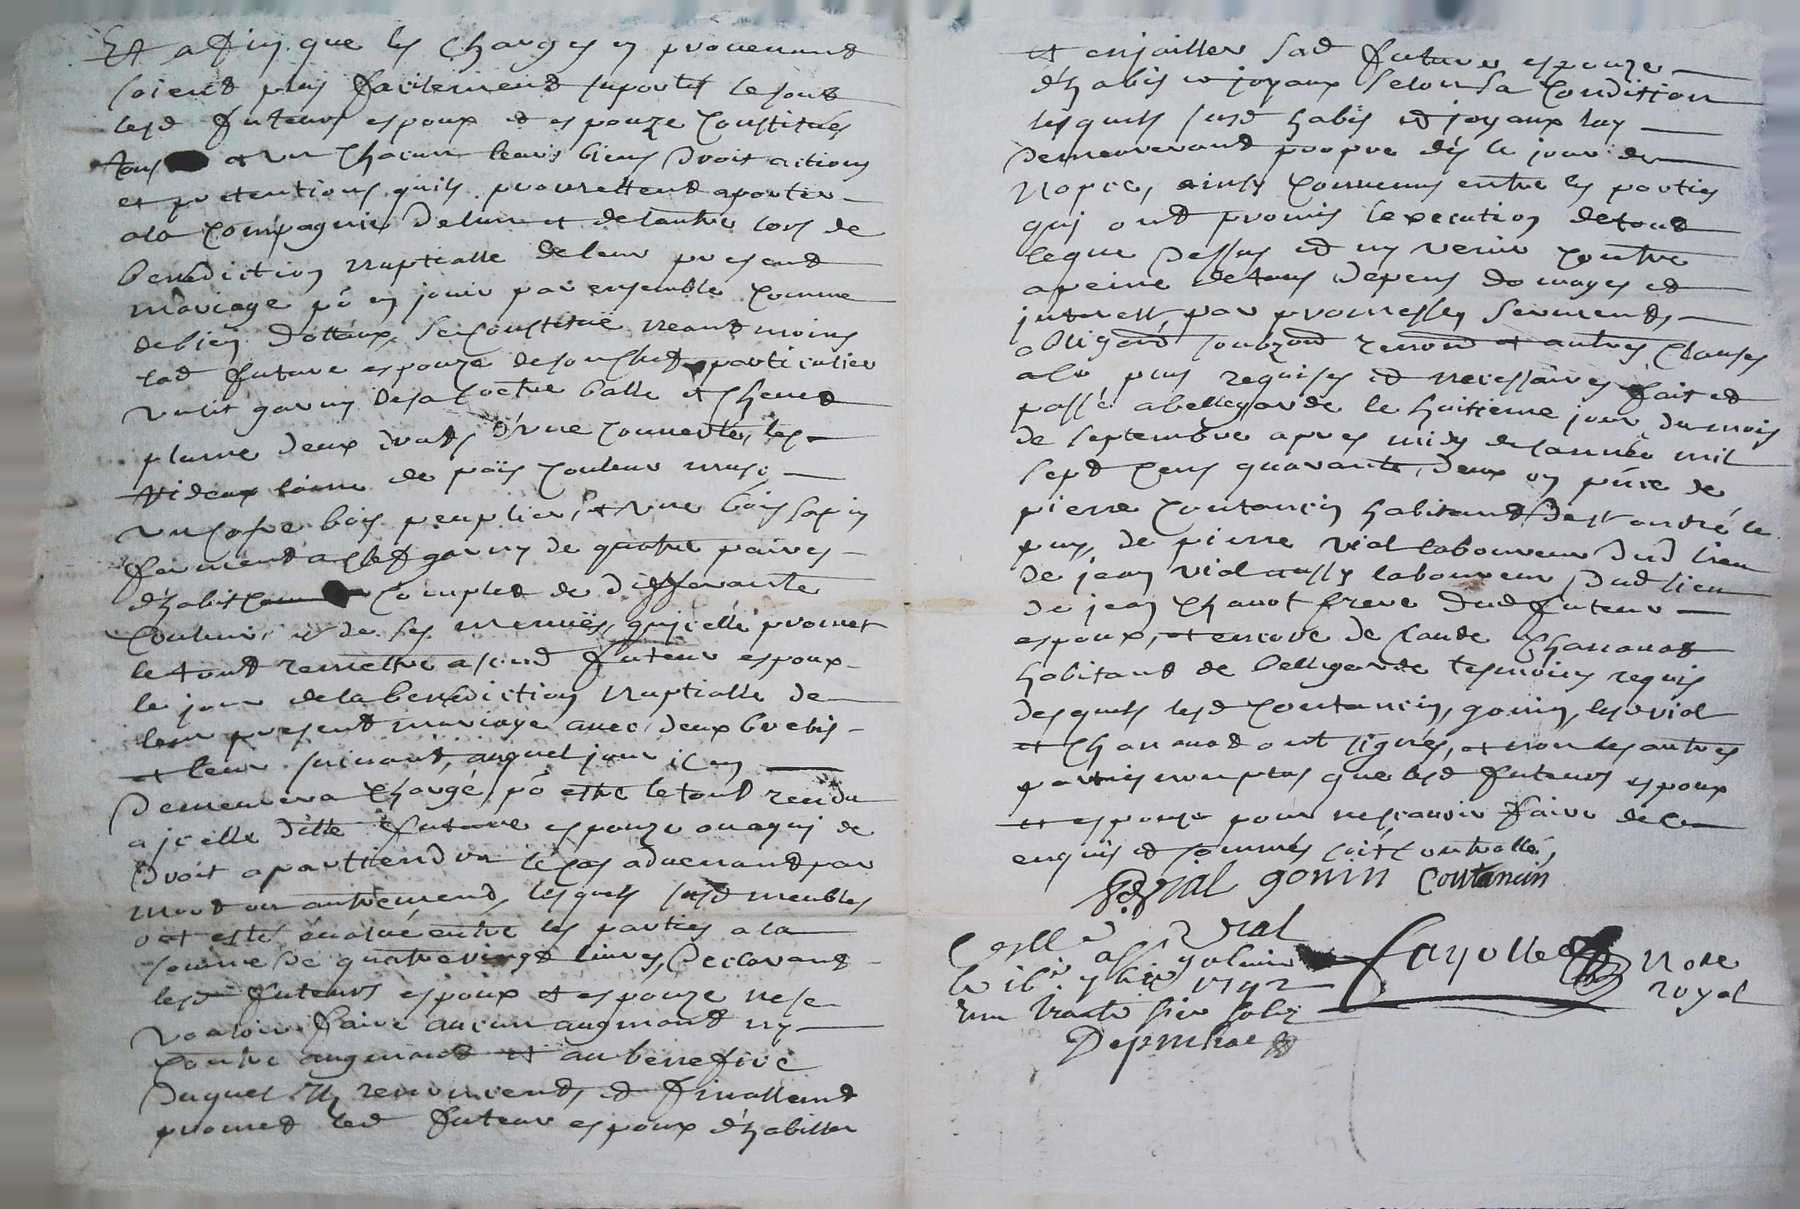 Et afin que les charges en provenant
soient plus facilement suportés se sont
lesd futeurs espoux et espouze constitués
tous et un chacun leurs biens droit actions
et pretentions quils promettent aporter
a la compagnie de lun et de lautre lors de
benediction nuptialle de leur present
mariage po en jouir par ensemble comme
de bien dottaux, se constitue neantmoins
lad future espouze de son chef particulier
un lit garny de sa coetre balle et chevet
plume deux draps d'une couverte, les
rideaux laine de païs couleur
un cofre bois peuplier, et une bois sapin
fermant a clef garny de quatre paires
d'habit complet de differante
couleur, et de ses menuës, qu'icelle promet
le tout remetre a sond futeur espoux
le jour de la benediction nuptialle de
leur present mariage avec deux brebis
et leur suivant, auquel jour il en
demeurera chargé, po estre le tout rendu
a jcelle ditte future espouze ou a qui de
droit apartiendra le cas advenant par
mort ou autrement, lesquels susd meubles
ont estés évalué entre les parties a la
somme de quatre vingt livres, Declarant
lesd futeurs espoux et espouze ne se
vouloir faire aucun augment ny
contre augment et au benefice
duquel ils renoncent, et finallemt
promet led futeur espoux d'habiller
et enjoailler sad future espouze
d'habis et joyaux selon sa condition
lesquels susd habis et joyaux luy
demeureront propre dés le jour des
nopces, ainsy convenus entre les parties
qui ont promis lexecution de tout
ce que dessus et ny venir contre
a peine de tous depens domages et
interest, par promesses serment,
obligaōn soubzōn renonōn et autres clauses
a ce plus requises et necessaires fait et
passé a bellegarde le huitieme jour du mois
de septembre apres midy de lannée mil
sept cens quarante deux en pñce de
pierre coutancin habitant de st andré le
puy, de pierre vial laboureur dud lieu
de jean vial aussy laboureur dud lieu
de jean chavot frere dud futeur
espoux, et encore de claude
habitant de bellegarde tesmoins requis
desquels lesd coutancin, gonin, lesd vial
et ont signés, et non les autres
parties non plus que lesd futeurs espoux
et espouze pour ne scavoir faire de ce
enquis et sommés soit controllé,
vial gonin coutancin
Vial
Conllé a st galmier
le 7bre 1742
Reçu trente six sols
fayolle Nore
royal